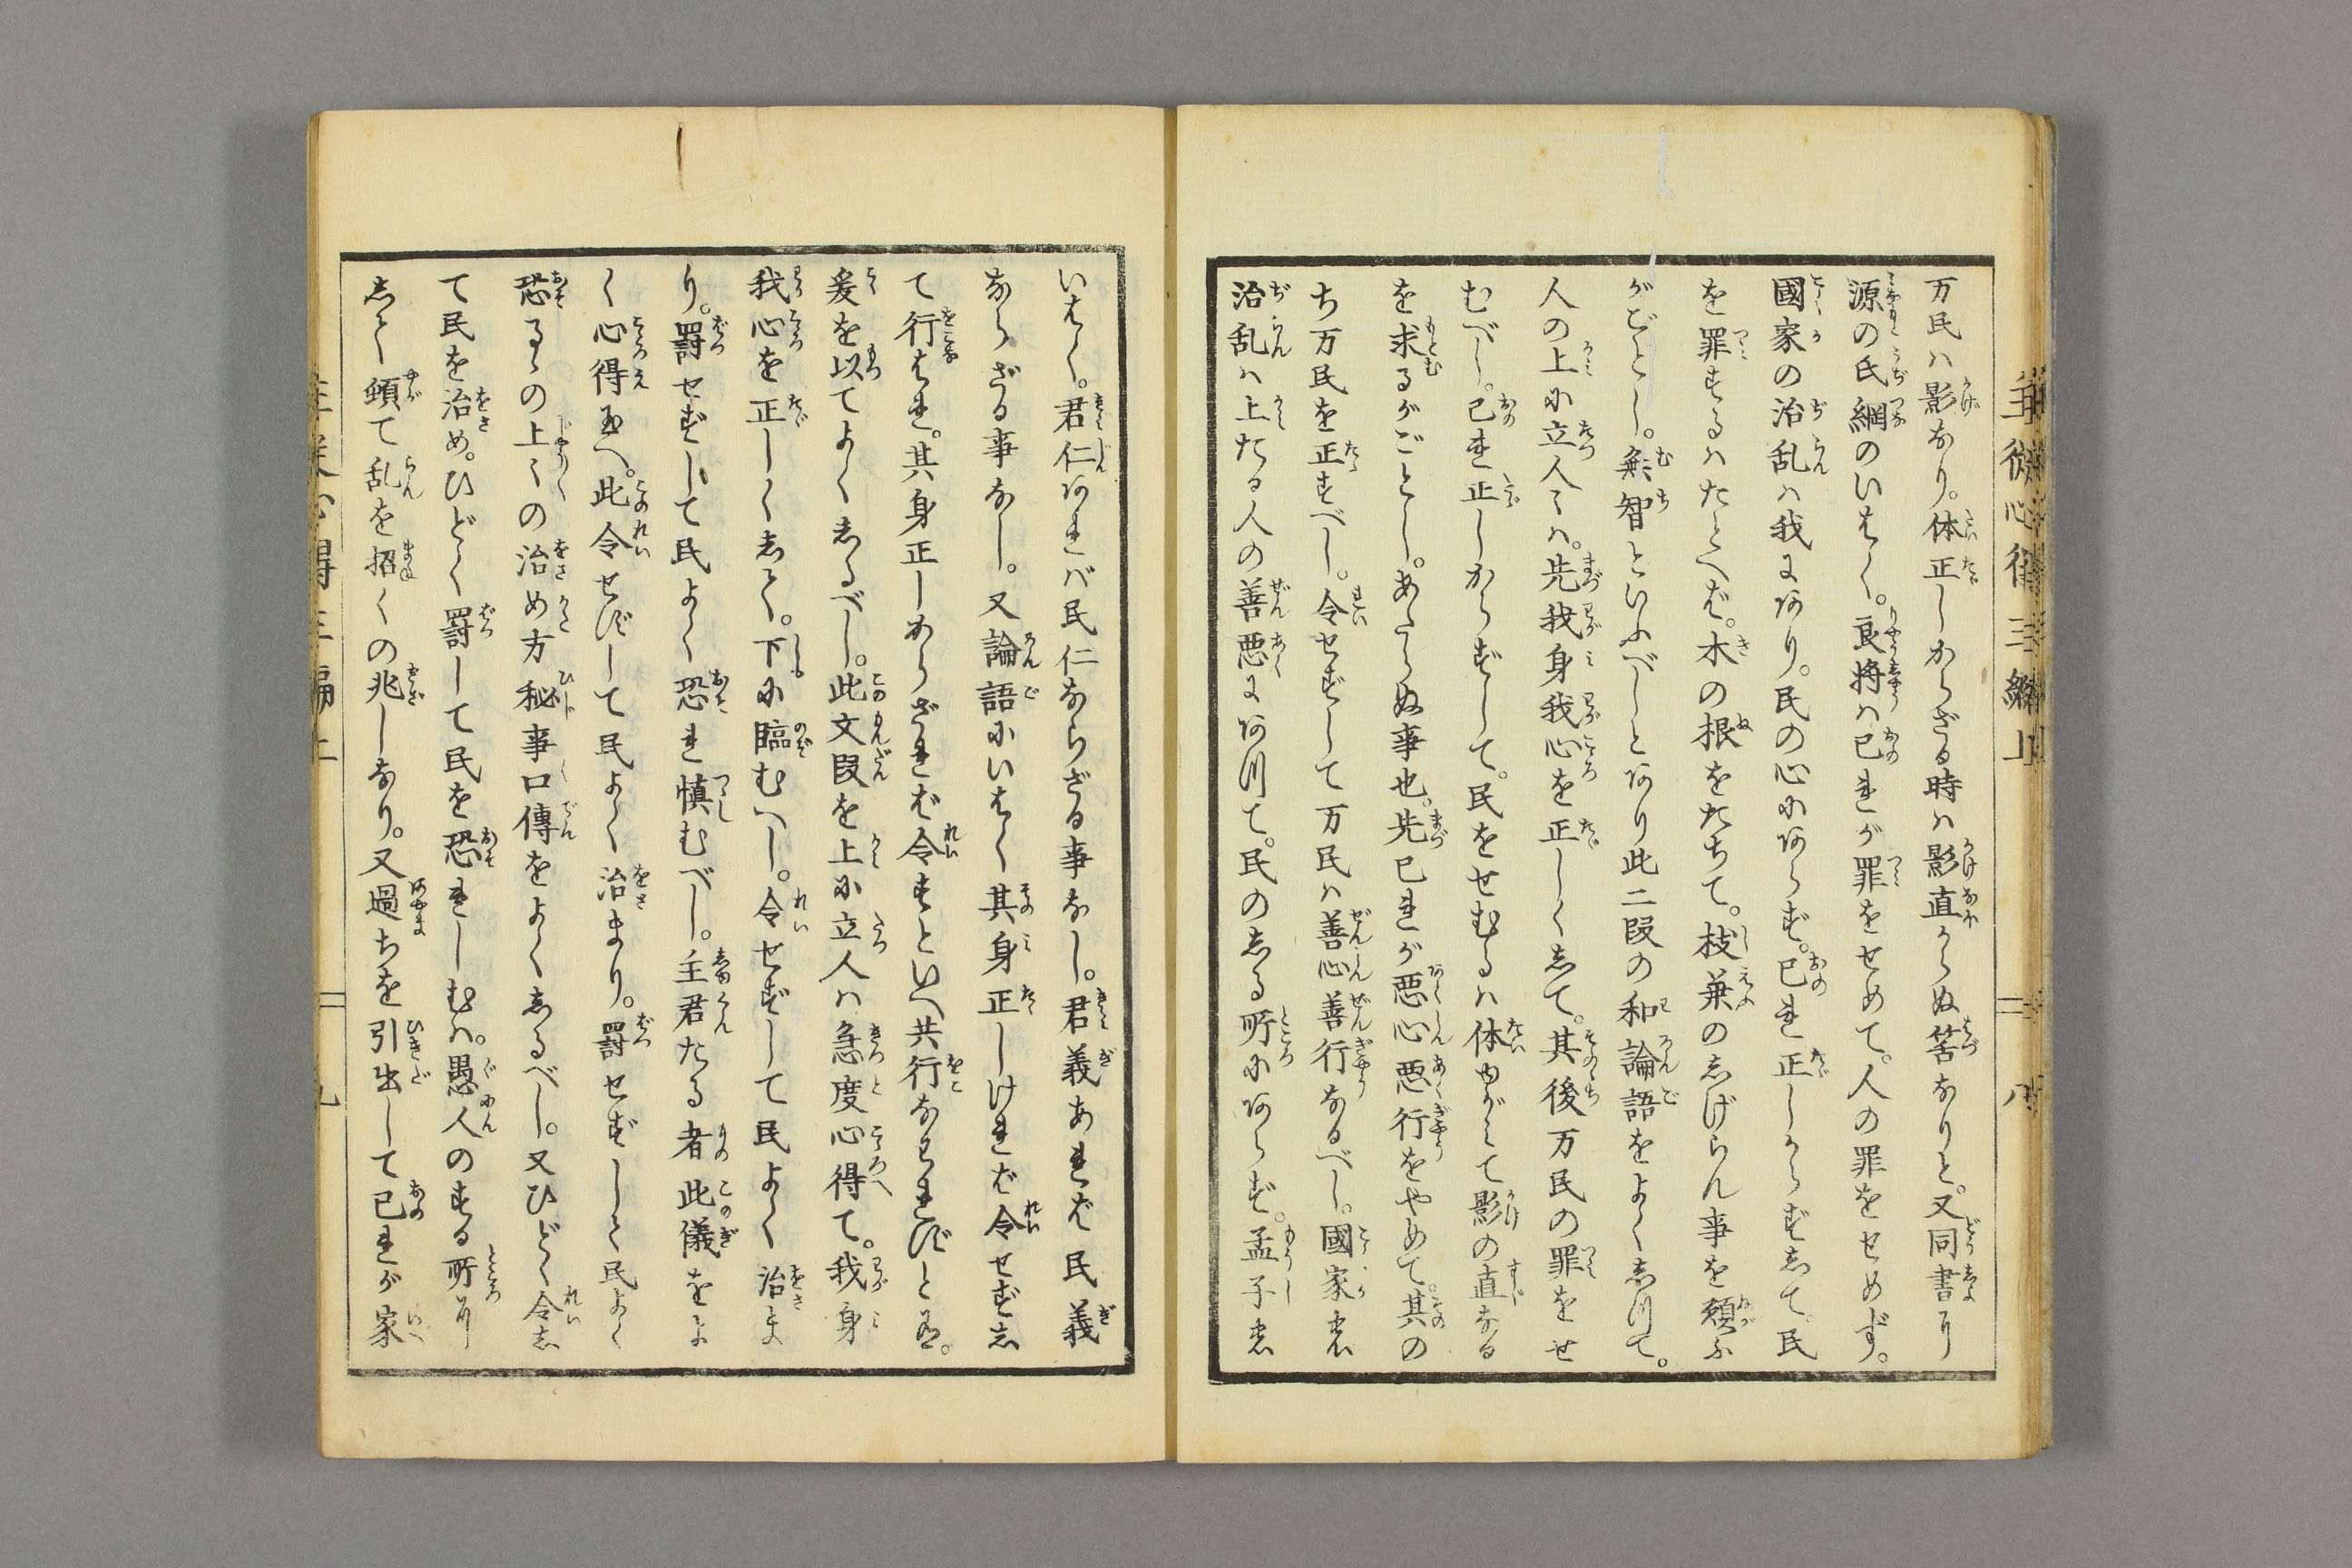 万民ハ影なり。体正しからざる時ハ影直からぬ筈なりと。又同書に
源の氏綱のいはく。良将ハ己れが罪をせめて。人の罪をせめず。
國家の治乱ハ我にあり。民の心にあらず。己れ正しからずして。民
を罪するハたとへば。木の根をたちて。枝葉のしげらん事を願ふ
がごとし。無智といふべしとあり此二段の和論語をよくしつて。
人の上に立人々ハ。先我身我心を正しくして。其後万民の罪をせ
むべし。己れ正しからずして。民をせむるハ体ゆがミて影の直なる
を求るがごとし。あたらぬ事也。先己れが悪心悪行をやめて。其の
ち万民を正すべし。令せずして万民ハ善心善行なるべし。國家の
治乱ハ上たる人の善悪にあつて。民のしる所にあらず。孟子の
いはく。君仁あれバ民仁ならざる事なし。君義あれば民義
ならざる事なし。又論語にいはく其身正しければ令せずし
て行はれ。其身正しからざれば令すといへ共行なはれずと有。
爰を以てよくしるべし。此文段を上に立人ハ急度心得て。我身
我心を正しくして。下に臨むべし。令せずして民よく治ま
り。罰せずして民よく恐れ慎むべし。主君たる者此儀をよ
く心得玉へ。此令せずして民よく治まり。罰せずして民よく
恐るゝの上々の治め方秘事口傳をよくしるべし。又ひどく令し
て民を治め。ひどく罰して民を恐れしむハ。愚人のする所に
して頓て乱を招くの兆しなり。又過ちを引出して己れが家